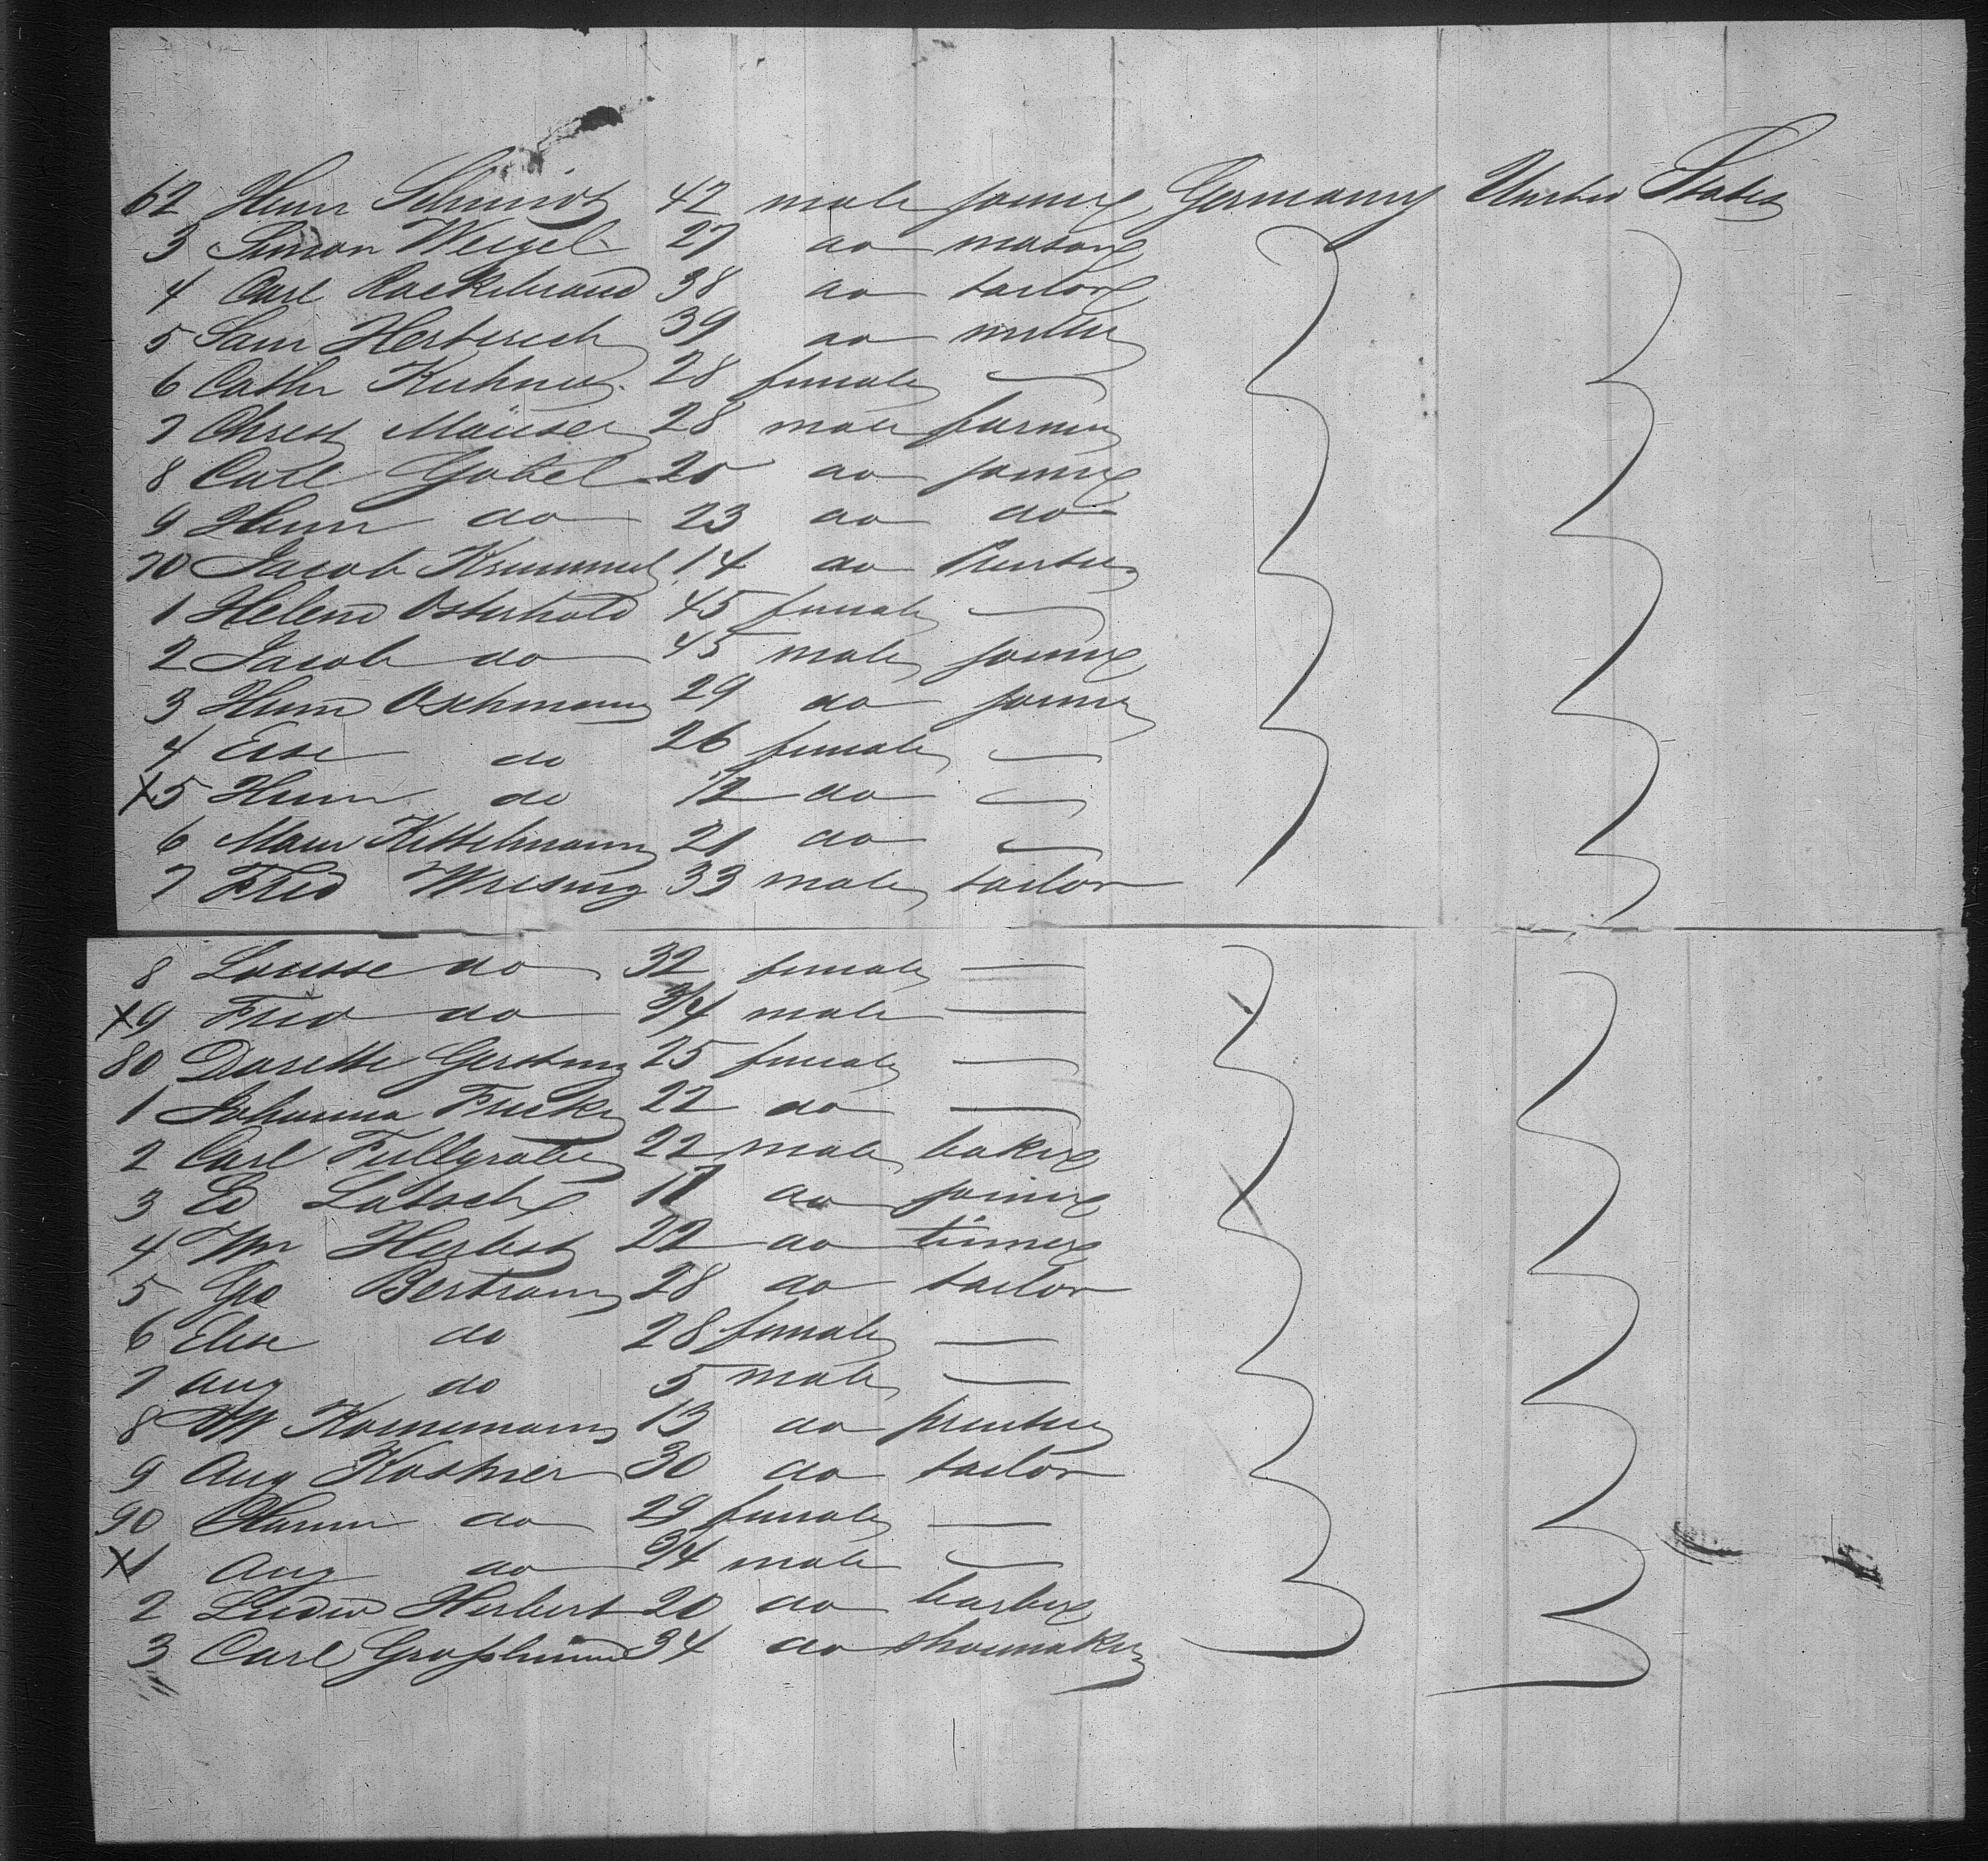 62 Henr Schmidt 42 male joiner Germany United States
3 Simon Weigel 27 do mason
4 Carl Rackebrand 38 do tailor
5 Sam Herberich 39 do miller
6 Cathr Kuhner 28 female —
7 Christ Mäuser 28 male farmer
8 Carl Gobel 20 do joiner
9 Henr do 23 do do
70 Jacob Krummel 14 do
1 Helene Osterhold 45 female —
2 Jacob do 45 male joiner
3 Henr Oschmann 29 do joiner
4 Elise do 26 female —
X5 Henr do 1/2 do —
6 Marie Kesselmann 21 do —
7 Fried Wresing 33 male tailor
8 Louise do 32 female —
X9 Fried do 3/4 male —
80 Dorette Gersting 25 female —
1 Johanna Fricke 22 do —
2 Carl Fullgrabe 22 male baker
3 Ed Lotsch 17 do joiner
4 Wm Herbst 22 do
5 Geo Bertram 28 do tailor
6 Elise do 28 female —
7 Aug do 5 male —
8 Kornemann 13 do
9 Aug Kastner 30 do tailor
90 do 29 female —
X1 Aug do 3/4 male —
2 Ludw Herbert 20 do barber
3 Carl 34 do shoemaker